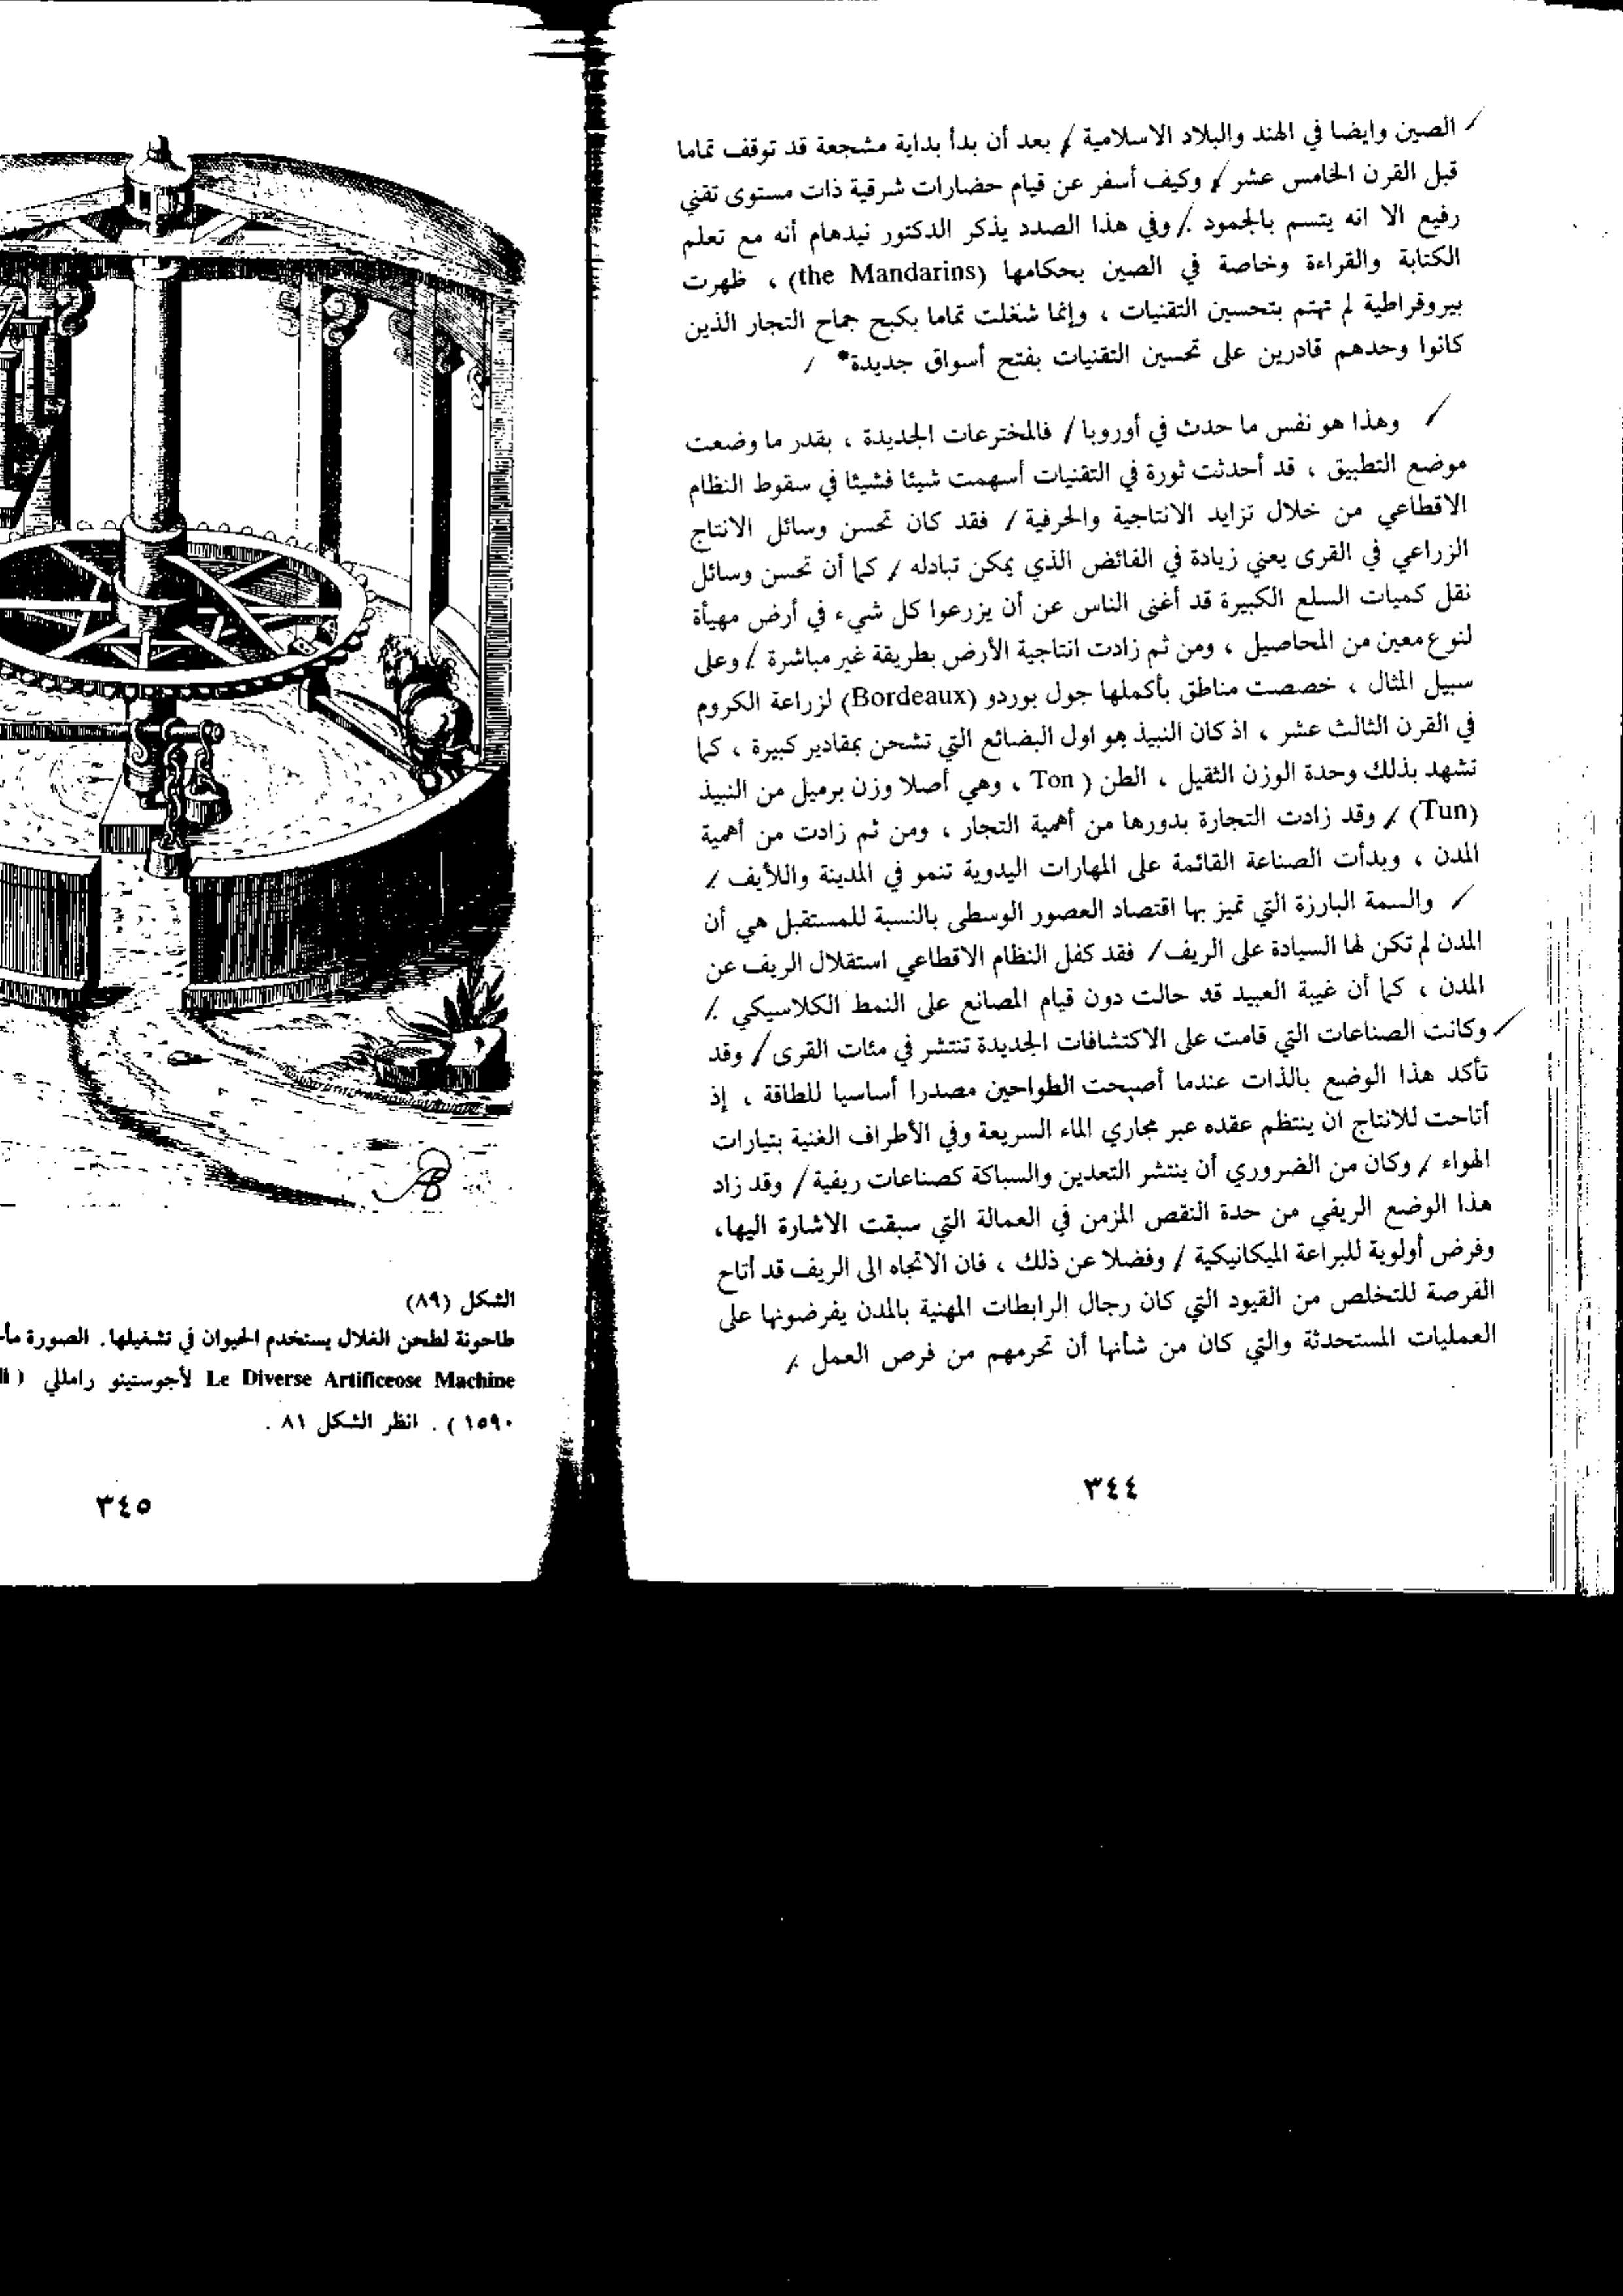 الصين وايضا في الهند والبلاد الاسلامية / بعد أن بدأ بداية مشجعة قد توقف تماما
قبل القرن الخامس عشر / وكيف أسفر عن قيام حضارات شرقية ذات مستوى تقني
رفيع الا انه يتسم بالجمود . / وفي هذا الصدد يذكر الدكتور نيدهام أنه مع تعلم
الكتابة والقراءة وخاصة في الصين بحكامها (the Mandarins) ، ظهرت
بيروقراطية لم تهتم بتحسين التقنيات ، وإنما شغلت تماما بكبح جماح التجار الذين
كانوا وحدهم قادرين على تحسين التقنيات بفتح أسواق جديدة* /
/ وهذا هو نفس ما حدث في أوروبا / فالمخترعات الجديدة ، بقدر ما وضعت
موضع التطبيق ، قد أحدثت ثورة في التقنيات أسهمت شيئا فشيئا في سقوط النظام
الاقطاعي من خلال تزايد الانتاجية والحرفية / فقد كان تحسن وسائل الانتاج
الزراعي في القرى يعني زيادة في الفائض الذي يمكن تبادله / كما أن تحسن وسائل
نقل كميات السلع الكبيرة قد أغنى الناس عن أن يزرعوا كل شيء في أرض مهيأة
لنوع معين من المحاصيل ، ومن ثم زادت انتاجية الأرض بطريقة غير مباشرة . / وعلى
سبيل المثال ، خصصت مناطق بأكملها جول بوردو (Bordeaux) لزراعة الكروم
في القرن الثالث عشر ، اذ كان النبيذ هو اول البضائع التي تشحن بمقادير كبيرة ، كما
تشهد بذلك وحدة الوزن الثقيل ، الطن ( Ton ، وهي أصلا وزن برميل من النبيذ
(Tun) / وقد زادت التجارة بدورها من أهمية التجار ، ومن ثم زادت من أهمية
المدن ، وبدأت الصناعة القائمة على المهارات اليدوية تنمو في المدينة واللأيف . /
/ والسمة البارزة التي تميز بها اقتصاد العصور الوسطى بالنسبة للمستقبل هي أن
المدن لم تكن لها السيادة على الريف / فقد كفل النظام الاقطاعي استقلال الريف عن
المدن ، كما أن غيبة العبيد قد حالت دون قيام المصانع على النمط الكلاسيكي . /
/ وكانت الصناعات التي قامت على الاكتشافات الجديدة تنتشر في مئات القرى / وقد
تأكد هذا الوضع بالذات عندما أصبحت الطواحين مصدرا أساسيا للطاقة ، إذ
أتاحت للانتاج ان ينتظم عقده عبر مجاري الماء السريعة وفي الأطراف الغنية بتيارات
الهواء / وكان من الضروري أن ينتشر التعدين والسباكة كصناعات ريفية / وقد زاد
هذا الوضع الريفي من حدة النقص المزمن في العمالة التي سبقت الاشارة اليها،
وفرض أولوية للبراعة الميكانيكية / وفضلا عن ذلك ، فان الاتجاه الى الريف قد أتاح
الفرصة للتخلص من القيود التي كان رجال الرابطات المهنية بالمدن يفرضونها على
العمليات المستحدثة والتي كان من شأنها أن تحرمهم من فرص العمل . /
٣٤٤
AB
الشكل (٨٩)
طاحونة لطحن الغلال يستخدم الحيوان في تشغيلها. الصورة
Le Diverse Artificeose Machine لأجوستينو رامللي (
١٥٩٠ ) . انظر الشكل ٨١ .
٣٤٥